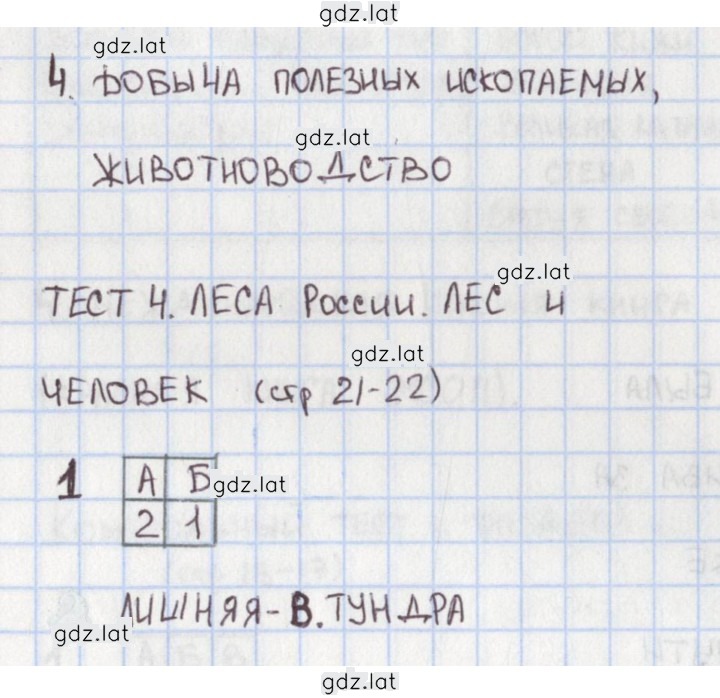 gdz.lat
gdz.lat
4. ДОБЫЧА ПОЛЕЗНЫХ ИСКОПАЕМЫХ,
gdz.lat
ЖИВОТНОВОДСТВО
gdz.lat
ТЕСТ 4. ЛЕСА РОССИИ. ЛЕС И
gdz.lat
ЧЕЛОВЕК (стр 21-22)
1 А Б
gdz.lat
2 1
ЛИШНЯЯ - В. ТУНДРА
gdz.lat
gdz.lat